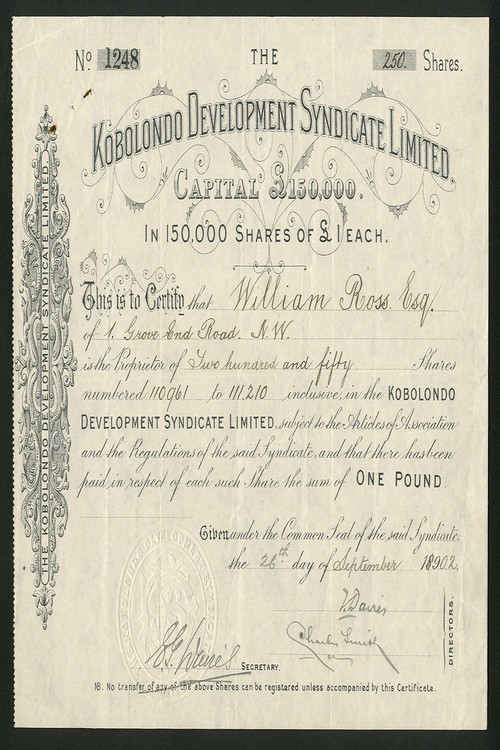 No 1248 THE 250 Shares.
KOBOLONDO DEVELOPMENT SYNDICATE LIMITED.
CAPITAL £150,000.
IN 150,000 SHARES OF £1 EACH.
This is to Certify that William Ross Esq.
of 1. Grove End Road. N.W.
is the Proprietor of Two hundred and fifty Shares
numbered 110961 to 111210 inclusive, in the KOBOLONDO
DEVELOPMENT SYNDICATE LIMITED, subject to the Articles of Association
and the Regulations of the said Syndicate, and that there has been
paid in respect of each such Share the sum of ONE POUND
Given under the Common Seal of the said Syndicate,
the 26th day of September 18902.
Charles Smith
DIRECTORS.
SECRETARY.
NB. No transfer of any of the above Shares can be registered unless accompanied by this Certificate.
THE KOBOLONDO DEVELOPMENT SYNDICATE LIMITED.